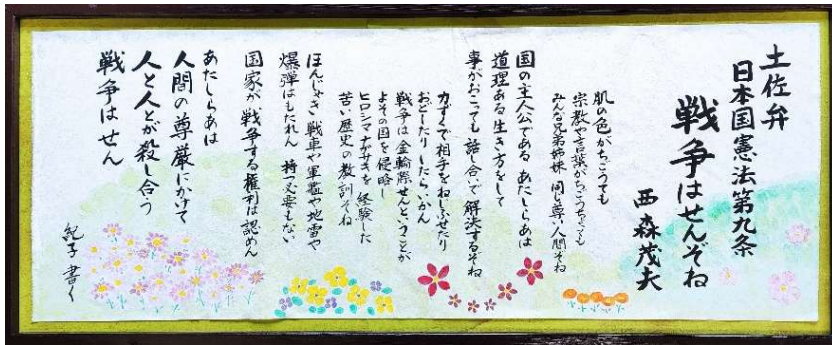 土佐弁
日本国憲法第九条
戦争はせんぞね
西森茂夫
肌の色がちごうても
宗教や言葉がちごうちょっても
みんな兄弟姉妹 同じ尊い人間ぞね
国の主人公である あたしらあは
道理ある生き方をして
事がおこっても 話し合いで 解決するぞね
力ずくで相手をねじふせたり
おどしたりしたらいかん
戦争は金輪際せんとゆうことが
よその国を侵略し
ヒロシマナガサキを 経験した
苦い歴史の教訓ぞね
ほんじゃき 戦車や軍艦や地雷や
爆弾はもたれん 持つ必要もない
国家が戦争する権利は認めん
あたしらあは
人間の尊厳にかけて
人と人とが殺し合う
戦争は せん
紀子 書く